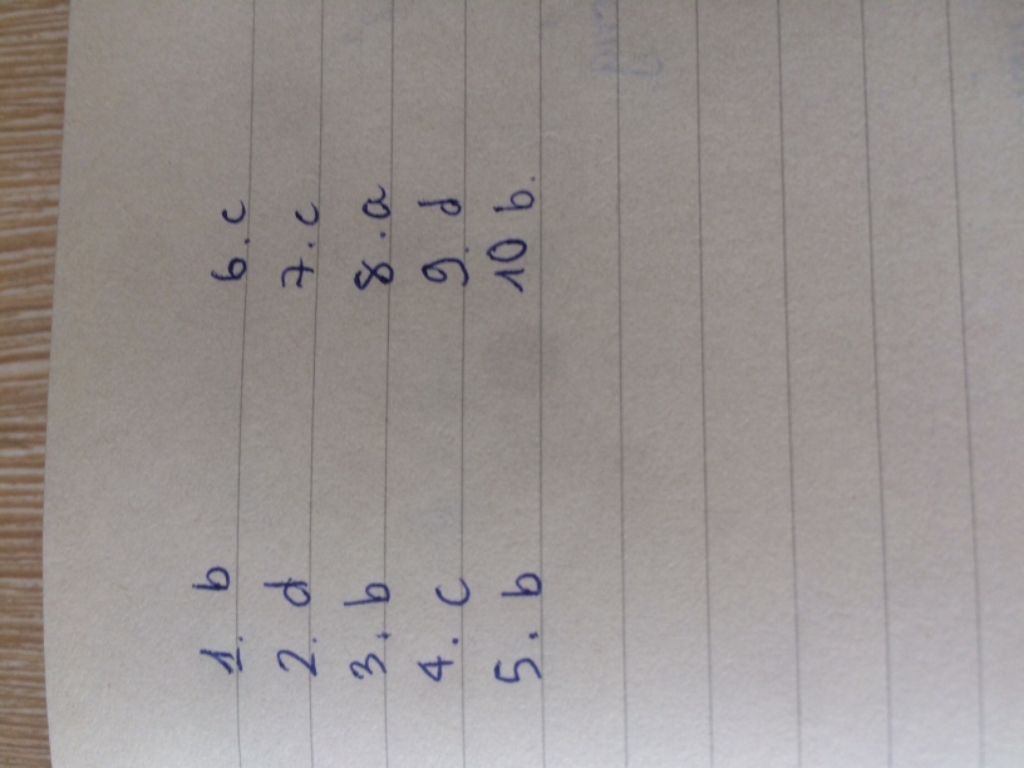 1. b
2. d
3. b
4. c
5. b
6. c
7. c
8. a
9. d
10 b.